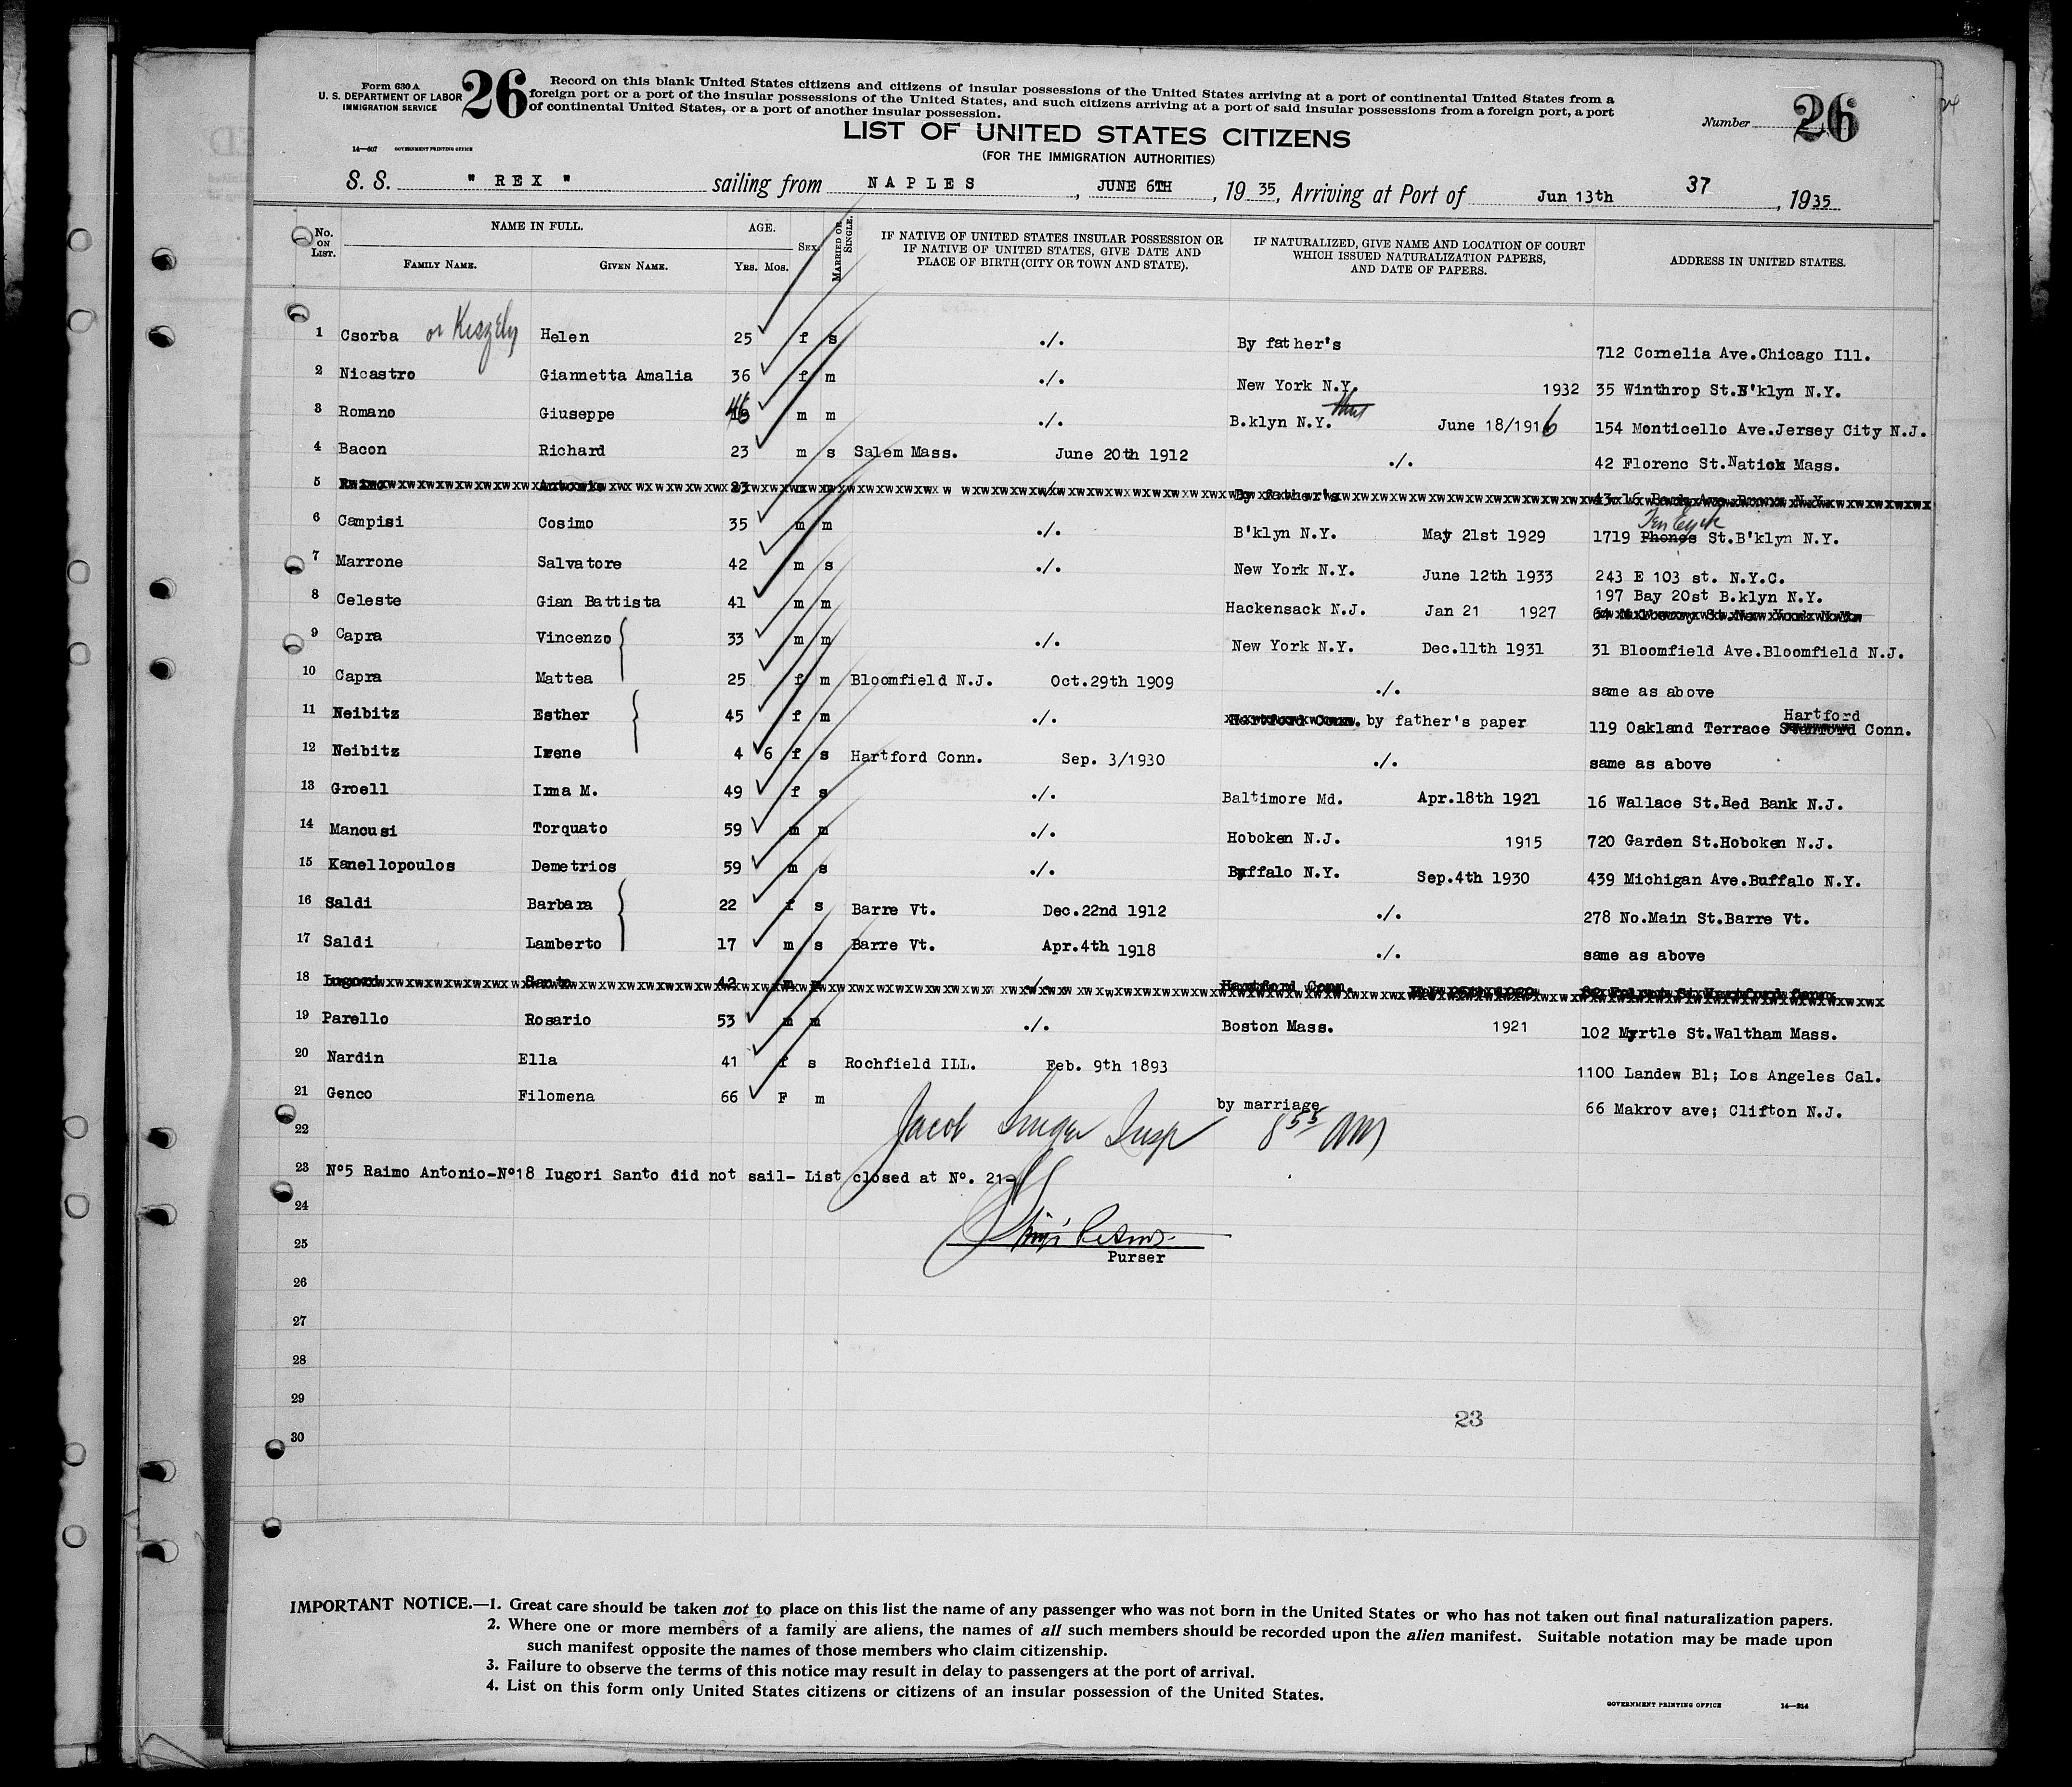 Form 630 A
U. S. DEPARTMENT OF LABOR
IMMIGRATION SERVICE
26
Record on this blank United States citizens and citizens of insular possessions of the United States arriving at a port of continental United States from a
foreign port or a port of the insular possessions of the United States, and such citizens arriving at a port of said insular possessions from a foreign port, a port
of continental United States, or a port of another insular possession.
LIST OF UNITED STATES CITIZENS
(FOR THE IMMIGRATION AUTHORITIES)
Number 26
24
14—607 GOVERNMENT PRINTING OFFICE
S. S. " REX " sailing from NAPLES, JUNE 6TH, 1935, Arriving at Port of Jun 13th 37, 1935
No. ON LIST. NAME IN FULL. FAMILY NAME. GIVEN NAME. AGE. YRS. MOS. SEX. MARRIED OR SINGLE. IF NATIVE OF UNITED STATES INSULAR POSSESSION OR IF NATIVE OF UNITED STATES, GIVE DATE AND PLACE OF BIRTH (CITY OR TOWN AND STATE). IF NATURALIZED, GIVE NAME AND LOCATION OF COURT WHICH ISSUED NATURALIZATION PAPERS, AND DATE OF PAPERS. ADDRESS IN UNITED STATES.
1 Csorba or Keszely Helen 25 f s ./. By father's 712 Cornelia Ave.Chicago Ill.
2 Nicastro Giannetta Amalia 36 f m ./. New York N.Y. 1932 35 Winthrop St.B'klyn N.Y.
3 Romano Giuseppe 46 m m ./. B.klyn N.Y. June 18/1916 154 Monticello Ave.Jersey City N.J.
4 Bacon Richard 23 m s Salem Mass. June 20th 1912 ./. 42 Florenc St.Natick Mass.
5 Raimo Antonio 23 m By father's
6 Campisi Cosimo 35 m m ./. B'klyn N.Y. May 21st 1929 1719 Phones Ten Eyck St.B'klyn N.Y.
7 Marrone Salvatore 42 m s ./. New York N.Y. June 12th 1933 243 E 103 st. N.Y.C.
8 Celeste Gian Battista 41 m m Hackensack N.J. Jan 21 1927 197 Bay 20st B.klyn N.Y.
9 Capra Vincenzo 33 m m ./. New York N.Y. Dec.11th 1931 31 Bloomfield Ave.Bloomfield N.J.
10 Capra Mattea 25 f m Bloomfield N.J. Oct.29th 1909 ./. same as above
11 Neibitz Esther 45 f m ./. Hartford Conn. by father's paper 119 Oakland Terrace Hartford Conn.
12 Neibitz Irene 4 6 f s Hartford Conn. Sep. 3/1930 ./. same as above
13 Groell Irma M. 49 f s ./. Baltimore Md. Apr.18th 1921 16 Wallace St.Red Bank N.J.
14 Mancusi Torquato 59 m m ./. Hoboken N.J. 1915 720 Garden St.Hoboken N.J.
15 Kanellopoulos Demetrios 59 m s ./. Buffalo N.Y. Sep.4th 1930 439 Michigan Ave.Buffalo N.Y.
16 Saldi Barbara 22 f s Barre Vt. Dec.22nd 1912 ./. 278 No.Main St.Barre Vt.
17 Saldi Lamberto 17 m s Barre Vt. Apr.4th 1918 ./. same as above
18 Iugori Santo 42 m m ./. Hartford Conn.
19 Parello Rosario 53 m m ./. Boston Mass. 1921 102 Myrtle St.Waltham Mass.
20 Nardin Ella 41 f s Rochfield ILL. Feb. 9th 1893 1100 Landew Bl; Los Angeles Cal.
21 Genco Filomena 66 F m by marriage 66 Makrov ave; Clifton N.J.
22 Jacob Singer Insp 8 55 AM
23 Nº5 Raimo Antonio-Nº18 Iugori Santo did not sail- List closed at Nº. 21-
24
25
Purser
26
27
28
29
23
30
IMPORTANT NOTICE.—1. Great care should be taken not to place on this list the name of any passenger who was not born in the United States or who has not taken out final naturalization papers.
2. Where one or more members of a family are aliens, the names of all such members should be recorded upon the alien manifest. Suitable notation may be made upon
such manifest opposite the names of those members who claim citizenship.
3. Failure to observe the terms of this notice may result in delay to passengers at the port of arrival.
4. List on this form only United States citizens or citizens of an insular possession of the United States.
GOVERNMENT PRINTING OFFICE 14—214